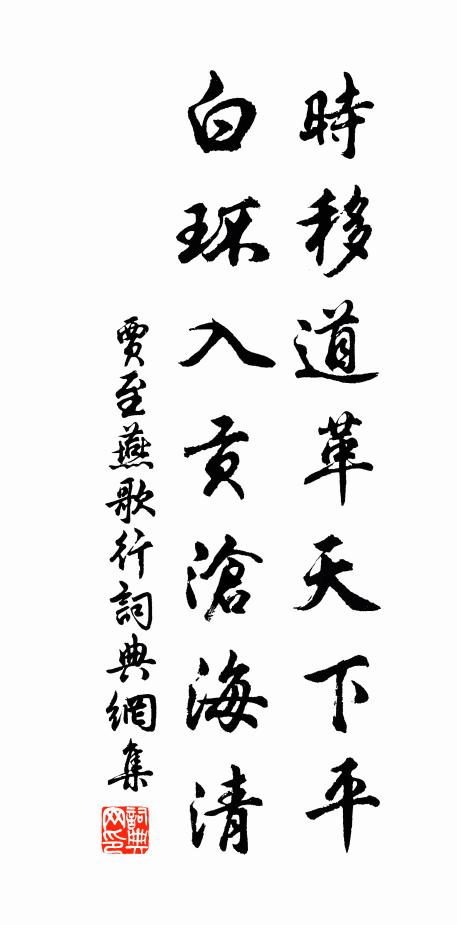 時移道革天下平
白環入貢滄海清
賈至燕歌行詞典網集
詞典
网印